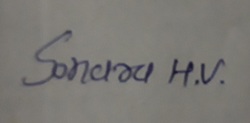 Sonara H.V.